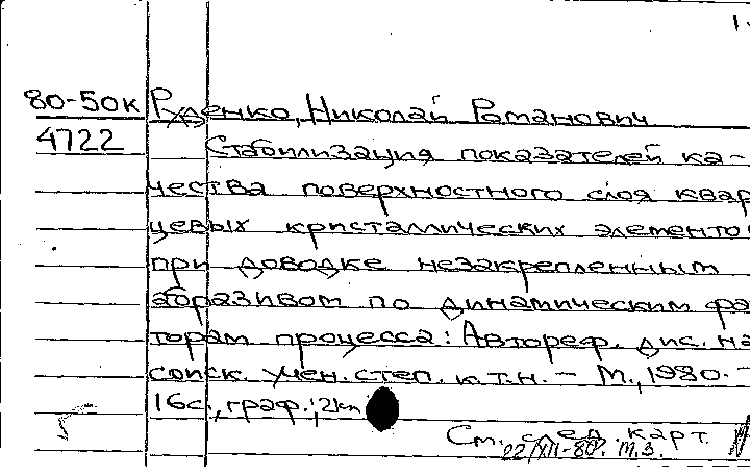 1
80-50к Руденко, Николай Романович
4722
Стабилизация показателей ка-
чества поверхностного слоя квар
цевых кристаллических элементо
при доводке незакрепленным
абразивом по динамическим фа
торам процесса: Автореф. дис. на
соиск. учен. степ. к.т.н. - М., 1980. -
16с., граф.; 21см
См. след. карт.
22/XII-80. М.З.